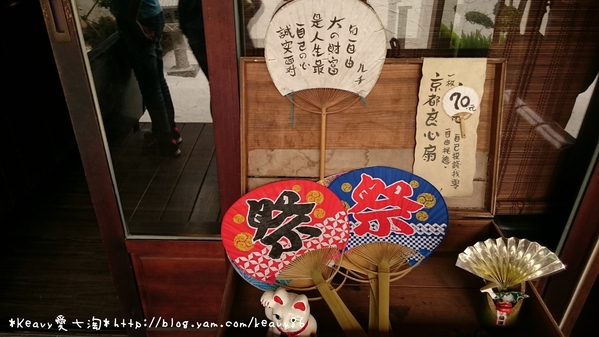 誠实面对
自己の心
是人生最
大の財富
自由
京都良心扇
一枝 70元
自由挑選
自己投錢找零
祭
祭
*Keavy愛七淘*http://blog.yam.com/keavy86